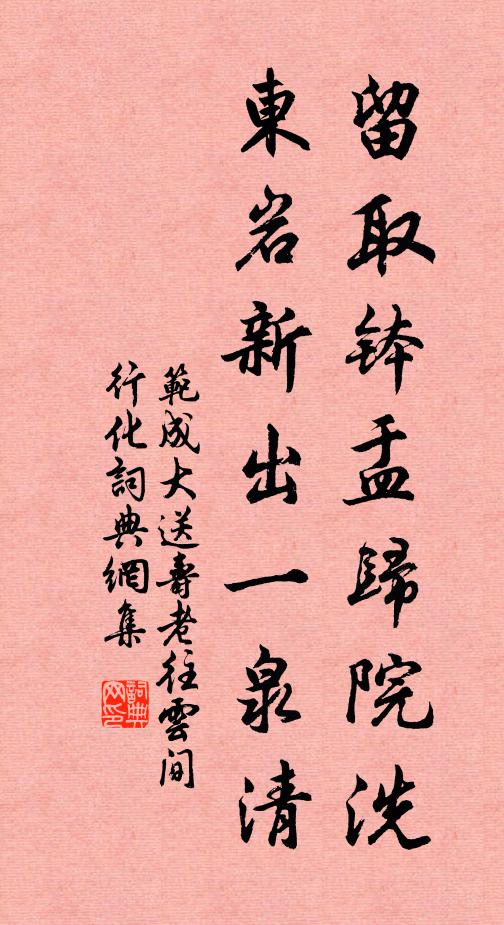 留取鉢盂歸院洗
東岩新出一泉清
範成大送壽老往雲间
行化詞典網集
詞典网印